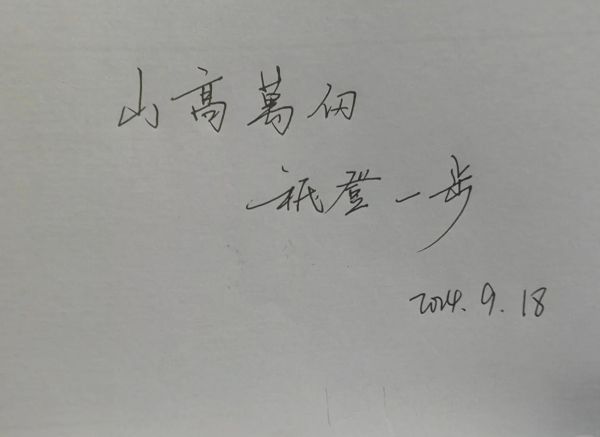 山高萬仞
祇登一步
2024.9.18